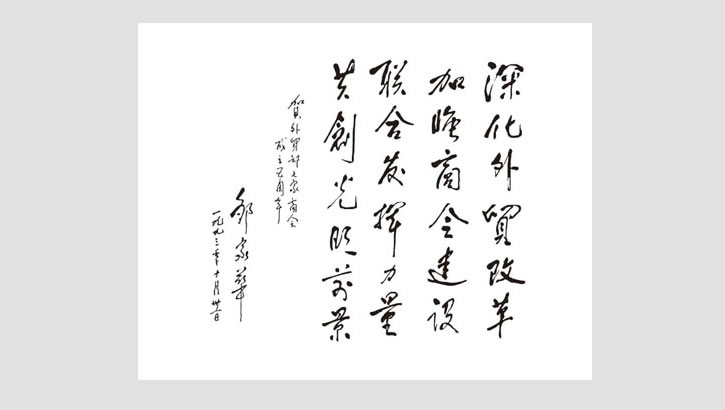 深化外貿改革
加強商会建设
联合发挥力量
共創光明前景
賀外貿部七家商会
成立五周年
邹家华
一九九三年十月